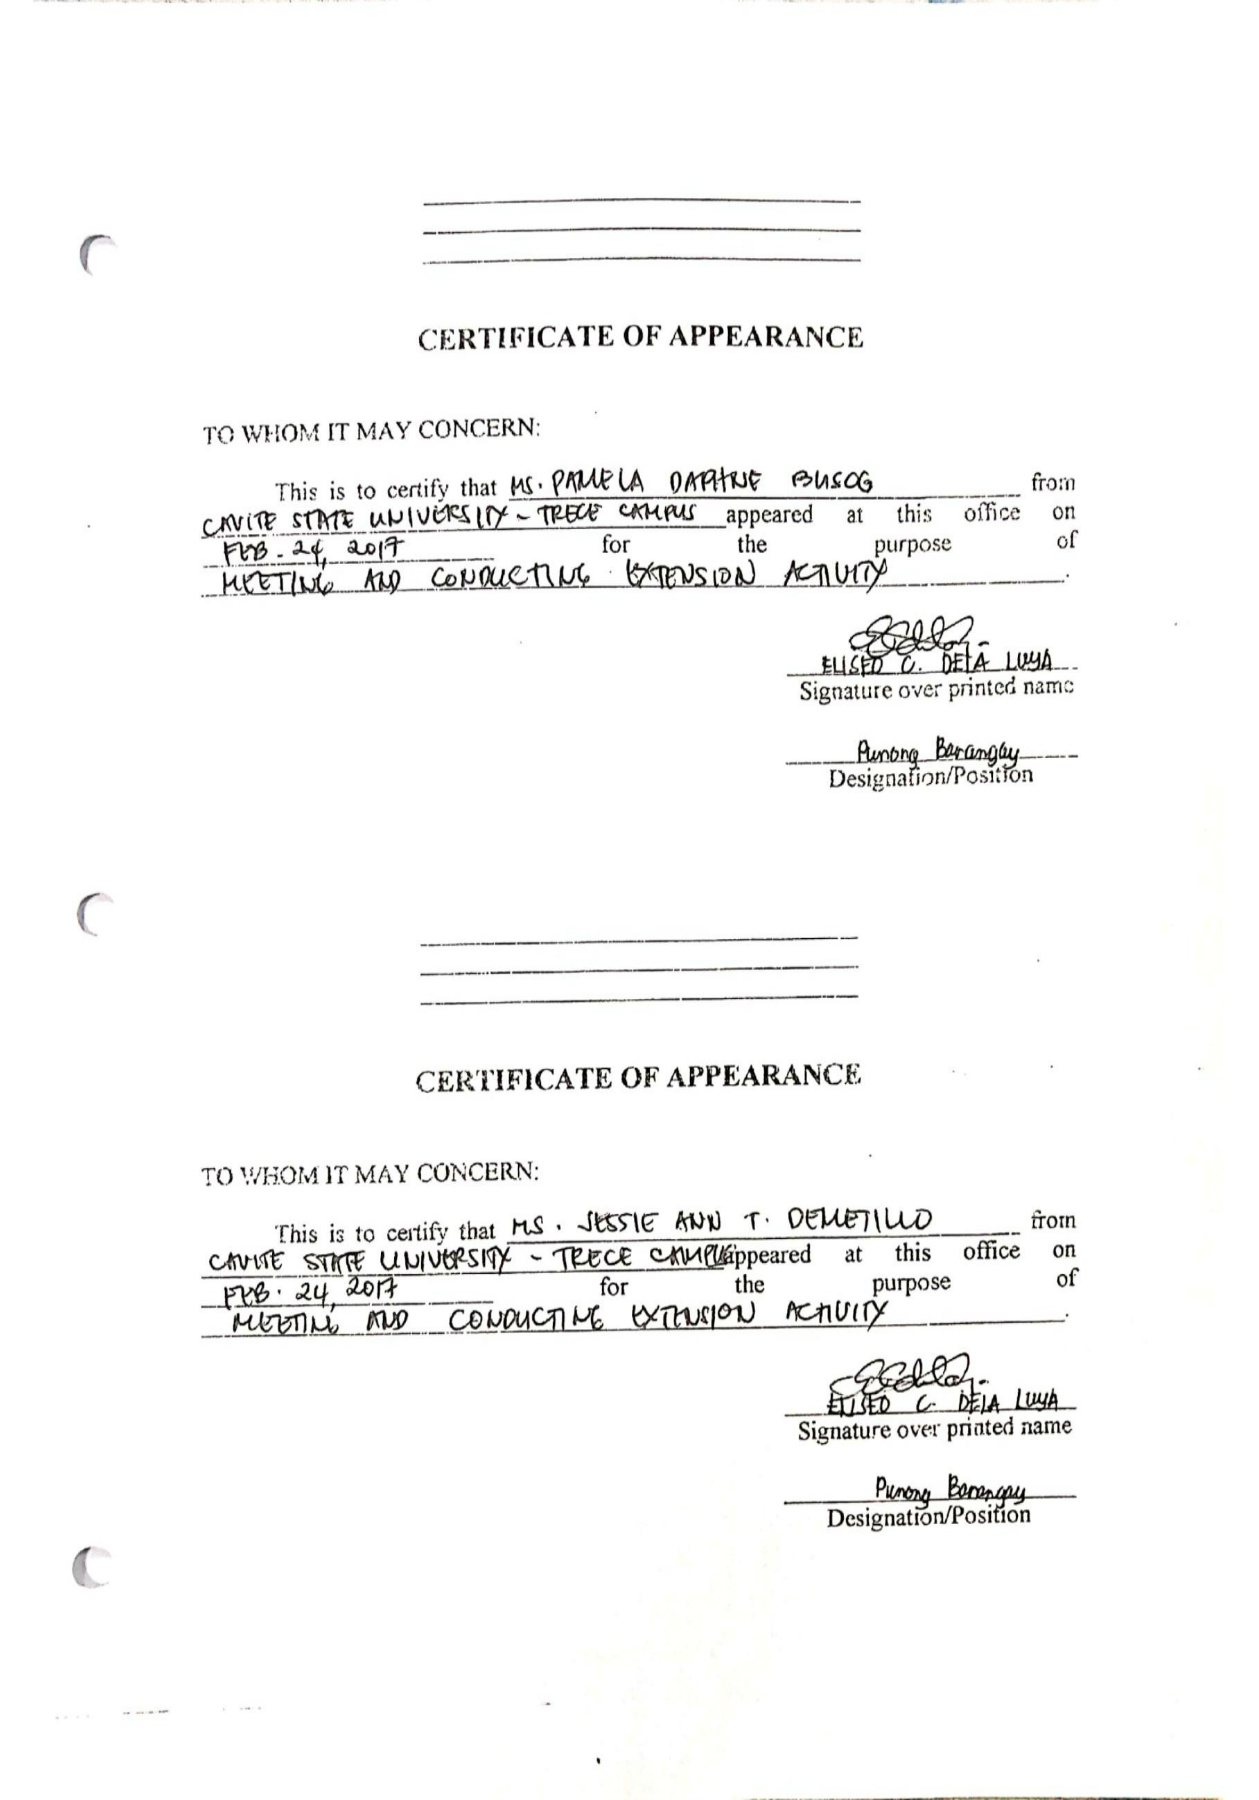 CERTIFICATE OF APPEARANCE
TO WHOM IT MAY CONCERN:
This is to certify that MS. PAMELA DAPHNE BUSOG from
CAVITE STATE UNIVERSITY - TRECE CAMPUS appeared at this office on
FEB. 24, 2017 for the purpose of
MEETING AND CONDUCTING EXTENSION ACTIVITY.
ELISEO C. DELA LUYA
Signature over printed name
Punong Barangay
Designation/Position
CERTIFICATE OF APPEARANCE
TO WHOM IT MAY CONCERN:
This is to certify that MS. JESSIE ANN T. DEMETILLO from
CAVITE STATE UNIVERSITY - TRECE CAMPUS appeared at this office on
FEB. 24, 2017 for the purpose of
MEETING AND CONDUCTING EXTENSION ACTIVITY.
ELISEO C. DELA LUYA
Signature over printed name
Punong Barangay
Designation/Position